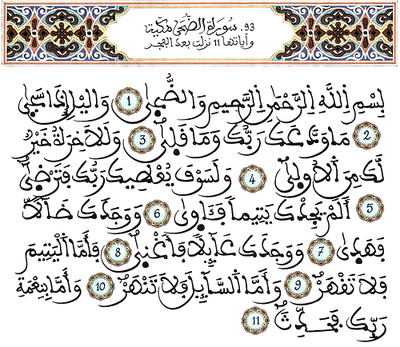 93. سورة الضحى مكية
وآياتها 11 نزلت بعد الفجر
بِسْمِ اللَّهِ الرَّحْمَٰنِ الرَّحِيمِ وَالضُّحَىٰ 1 وَالَّيْلِ إِذَا سَجَىٰ
2 مَا وَدَّعَكَ رَبُّكَ وَمَا قَلَىٰ 3 وَلَلْآخِرَةُ خَيْرٌ
لَّكَ مِنَ الْأُولَىٰ 4 وَلَسَوْفَ يُعْطِيكَ رَبُّكَ فَتَرْضَىٰ
5 أَلَمْ يَجِدْكَ يَتِيمًا فَآوَىٰ 6 وَوَجَدَكَ ضَالًّا
فَهَدَىٰ 7 وَوَجَدَكَ عَائِلًا فَأَغْنَىٰ 8 فَأَمَّا الْيَتِيمَ
فَلَا تَقْهَرْ 9 وَأَمَّا السَّائِلَ فَلَا تَنْهَرْ 10 وَأَمَّا بِنِعْمَةِ
رَبِّكَ فَحَدِّثْ 11